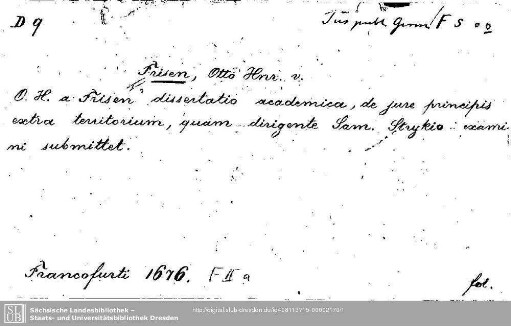 D 9
Jus publ. Germ. F 5 oo
Frisen, Otto Hnr. v.
O. H. a Frisen dissertatio academica, de jure principis
extra territorium, quam dirigente Sam. Strykio exami-
ni submittet.
Francofurti 1676. F II a
fol.
SLUB
Sächsische Landesbibliothek –
Staats- und Universitätsbibliothek Dresden